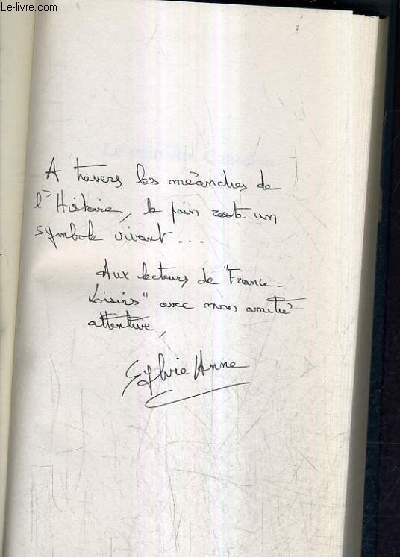 Le-livre.com
A travers les méandres de
l'Histoire, le pain est un
symbole vivant...
Aux lecteurs de "France-
Loisirs" avec mon amitié
attentive,
Sylvie Anne